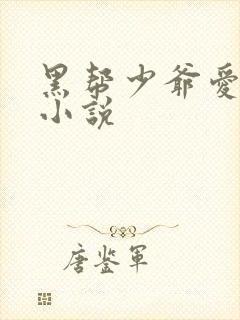 黑帮少爷爱
小说
唐鉴军